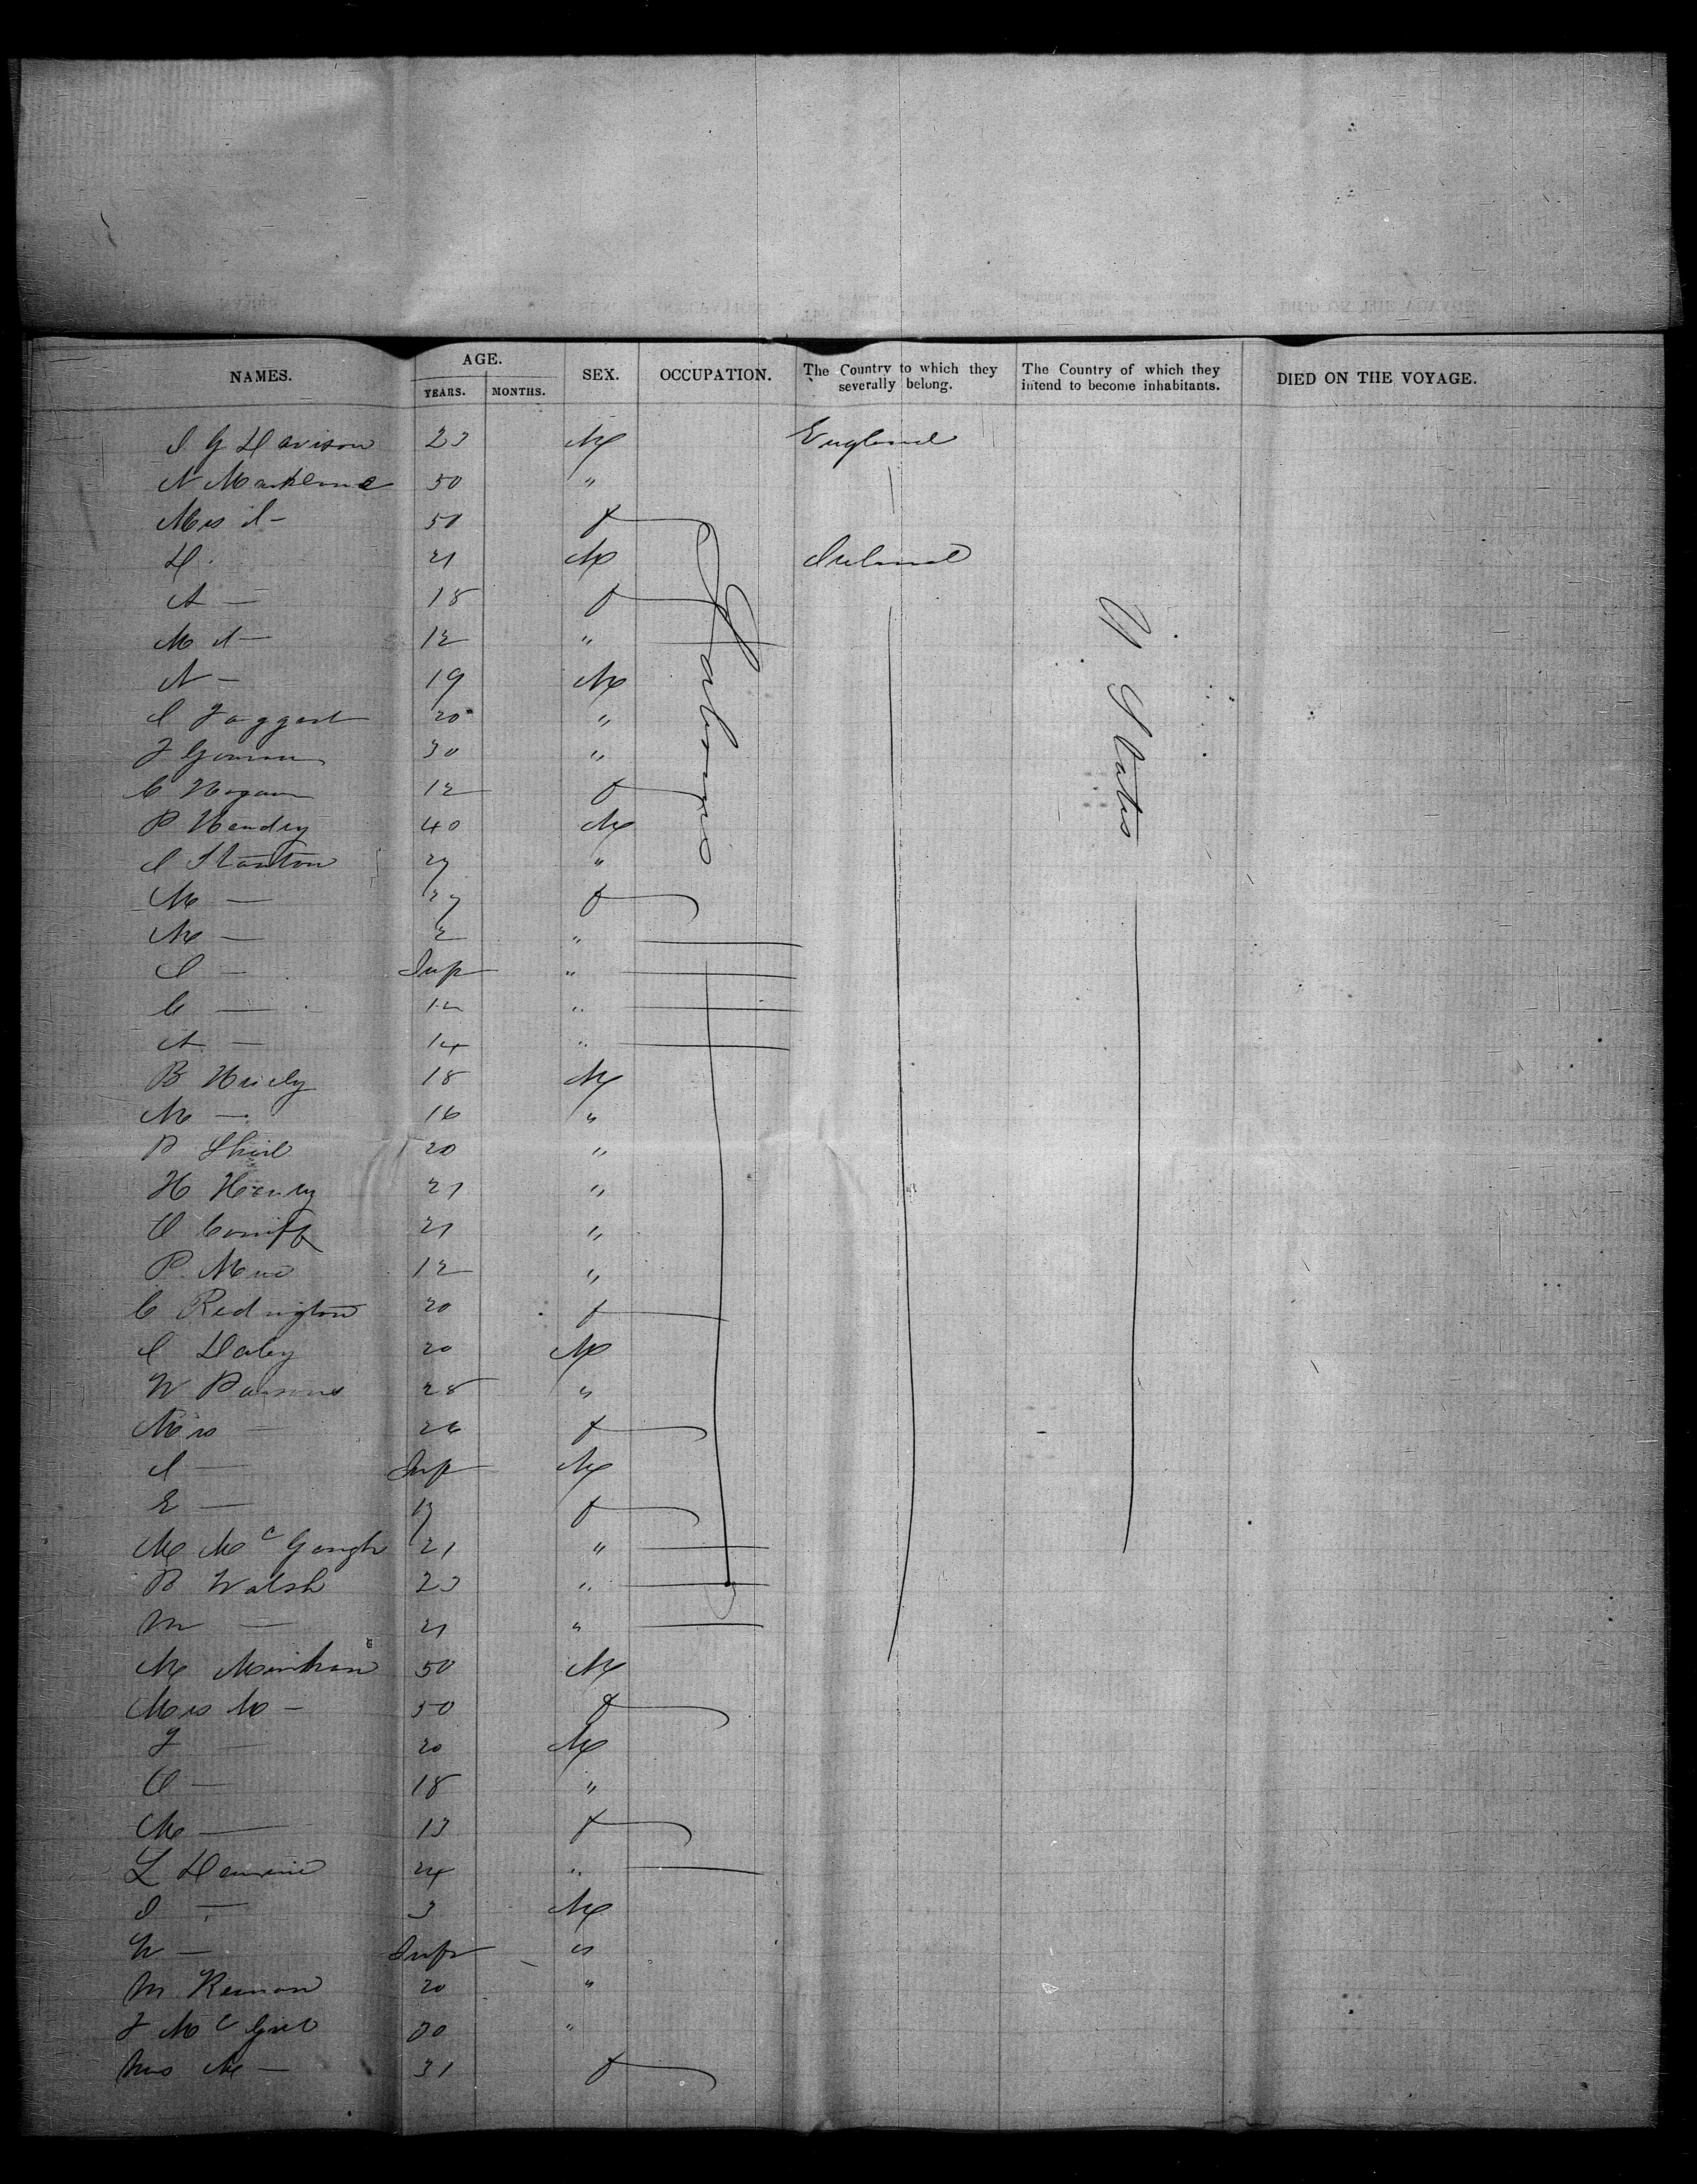 NAMES. AGE. YEARS. MONTHS. SEX. OCCUPATION. The Country to which they severally belong. The Country of which they intend to become inhabitants. DIED ON THE VOYAGE.
J G Davison 23 M England
N 50 "
Mrs J — 50 f
D. 21 M Ireland
A — 18 f
M A — 12 "
N — 19 M
J Taggart 20 "
J 30 "
C Hogan 12 f
P Hendry 40 M
J Stanton 27 "
M — 27 f
M — 2 "
J — Inf "
C — 12 "
A — 14 "
B 18 M
M — 16 "
P 20 "
H Henry 21 "
O Conniff 21 "
P. 12 "
C Redington 20 f
J Daley 20 M
W Parsons 28 "
Mrs — 26 f
J — Inf M
E — 17 f
M McGough 21 "
B Walsh 23 "
M — 21 "
M 50 M
Mrs M — 50 f
J — 20 M
O — 18 "
M — 13 f
L 24 "
J — 3 M
W — Inf "
M 20 "
J 30 "
Mrs M — 31 f
Labourers
U States